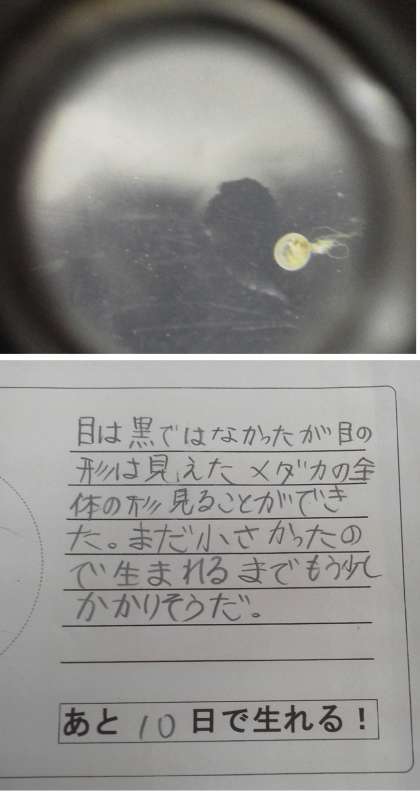 目は黒ではなかったが目の
形は見えたメダカの全
体の形見ることができ
た。まだ小さかったの
で生まれるまでもう少し
かかりそうだ。
あと10日で生れる！